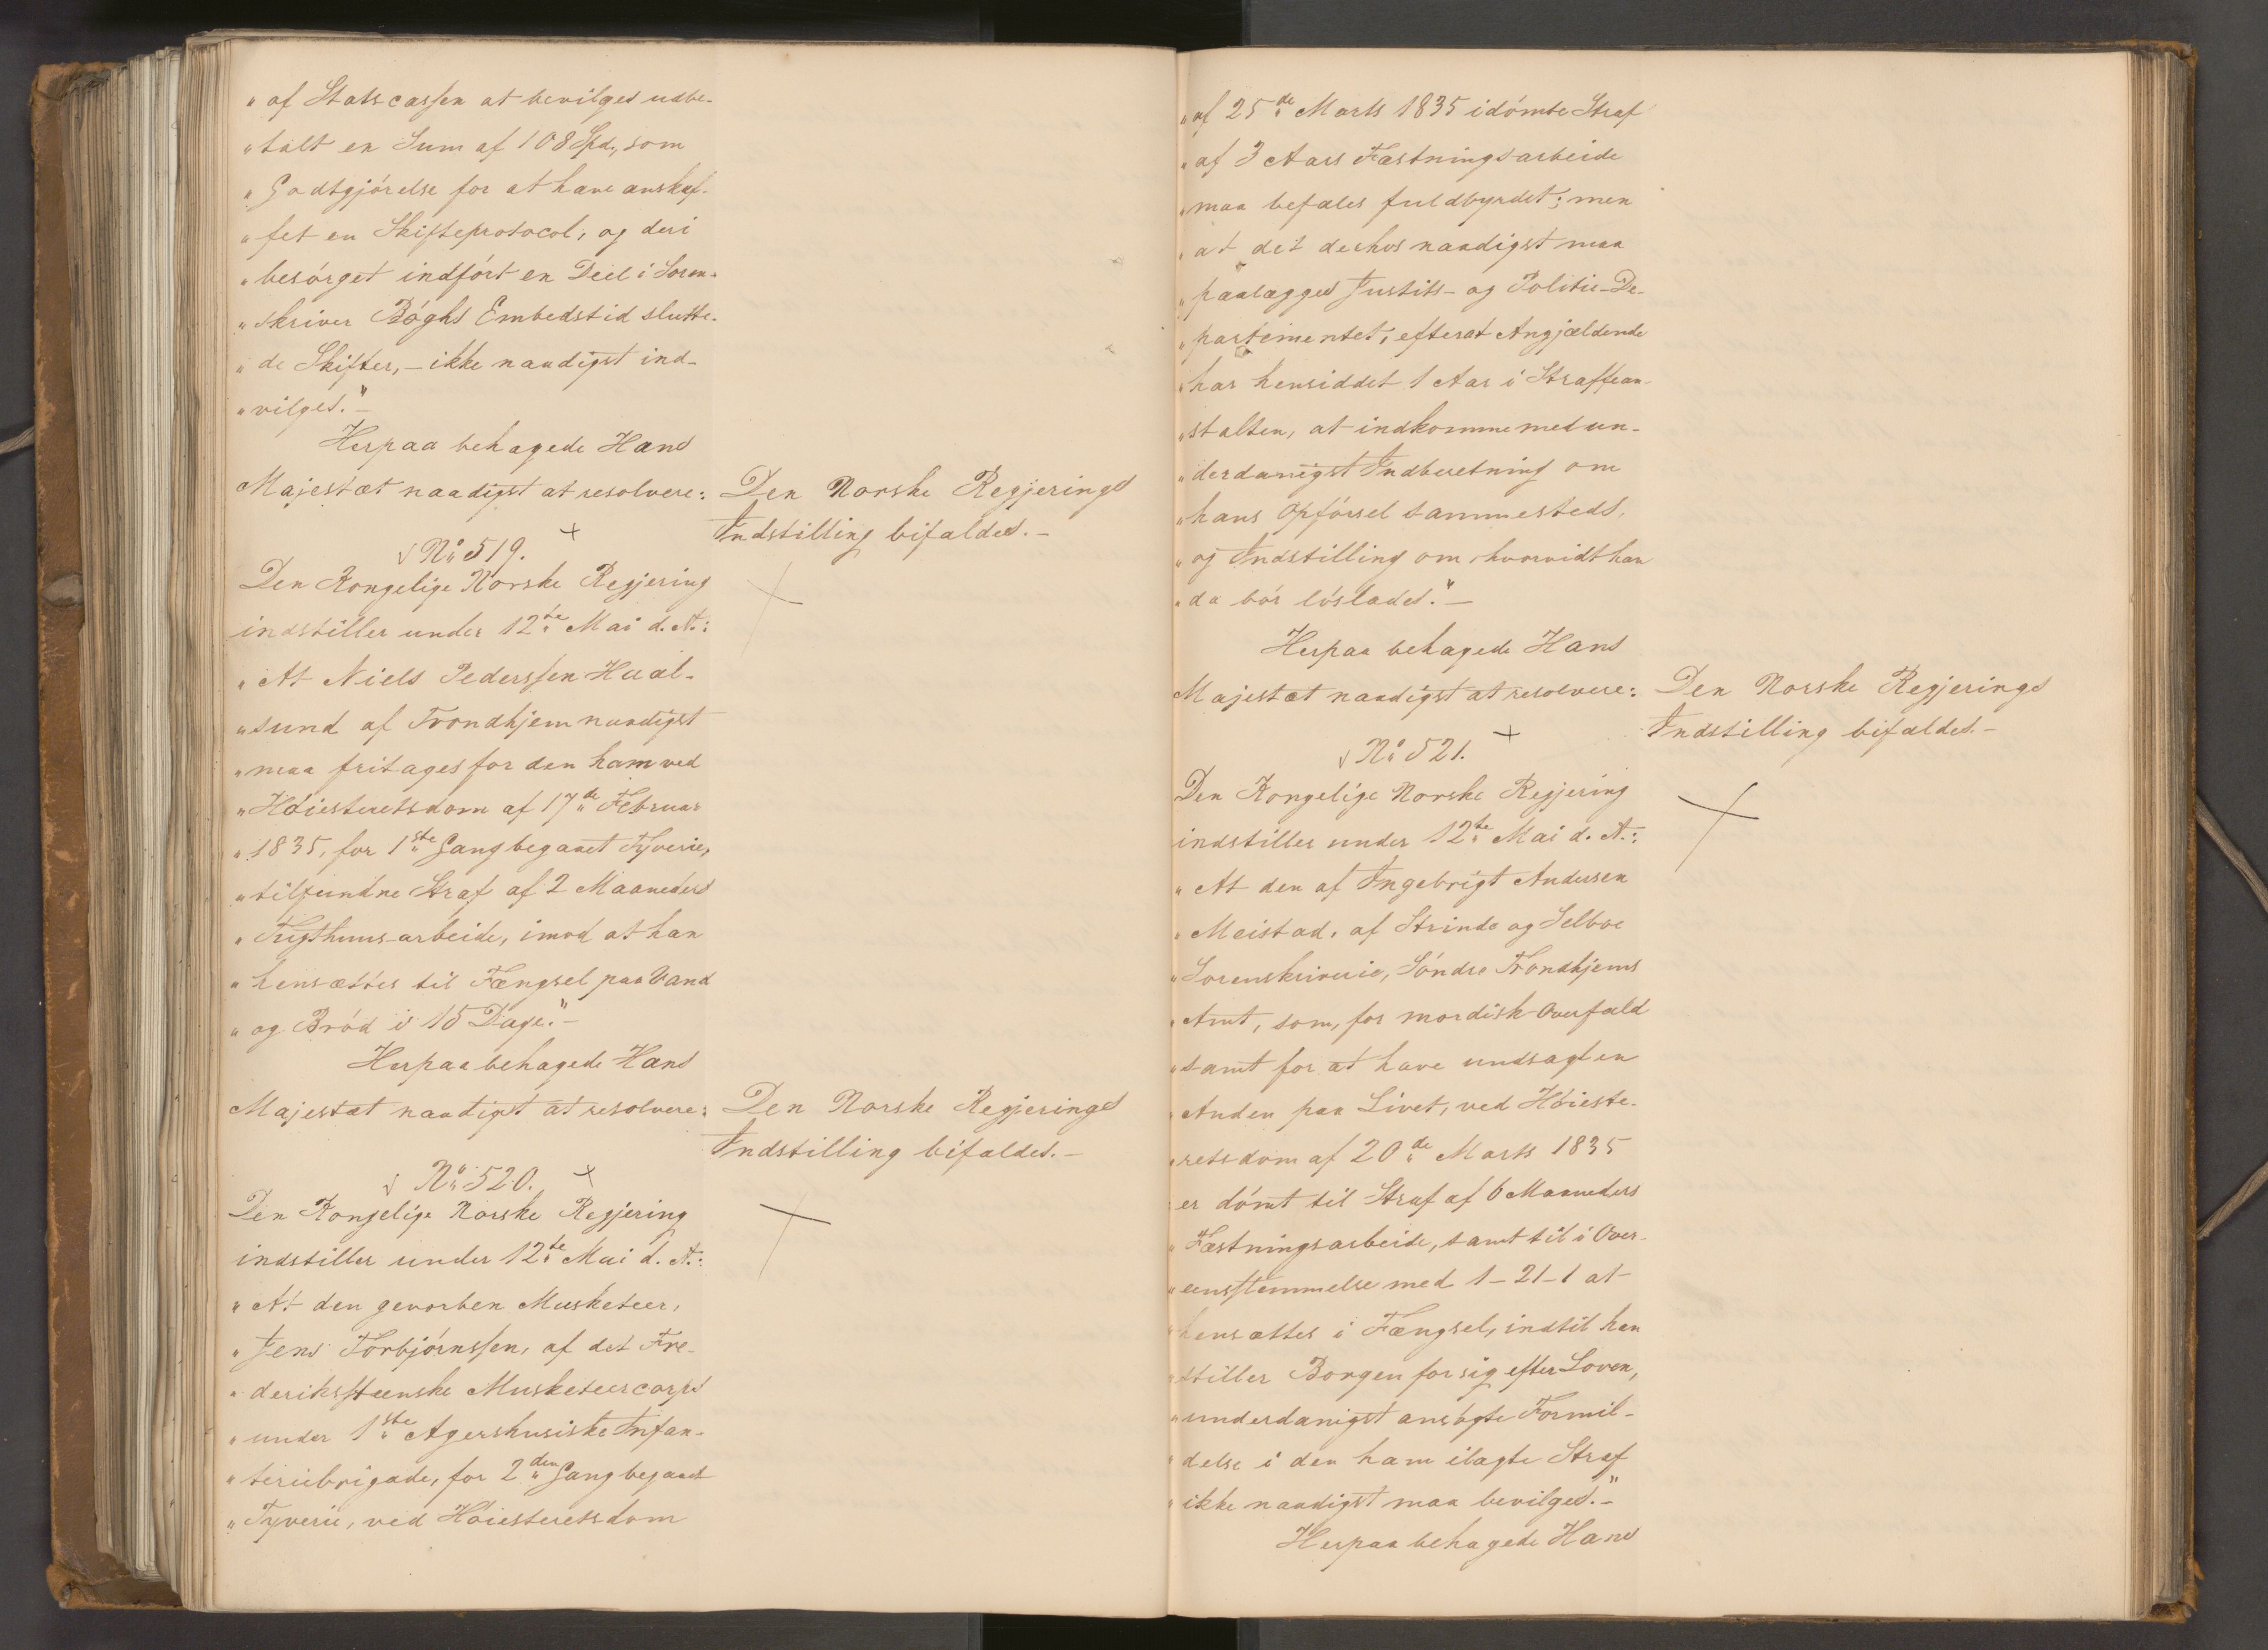 „af Statscassen at bevilges udbe-
„talt en Sum af 108 Spd., som
„Godtgjörelse for at have anskaf-
„fet en Skifteprotocol, og deri
„besörget indfört en Deel i Soren-
„skriver Böghs Embedstid slutte-
„de Skifter, – ikke naadigst ind-
„vilges.“ –
Herpaa behagede Hans
Majestæt naadigst at resolvere:
Den Norske Regjerings
Indstilling bifaldes. –
No 519.
Den Kongelige Norske Regjering
indstiller under 12te Mai d. A.:
„At Niels Pederssen Hual-
„sund af Trondhjem naadigst
„maa fritages for den ham ved
„Höiesteretsdom af 17de Februar
„1835, for 1ste Gang begaaet Tyverie,
„tilfundne Straf af 2 Maaneders
„Tugthuus-arbeide, imod at han
„hensættes til Fængsel paa Vand
„og Bröd i 15 Dage.“ –
Herpaa behagede Hans
Majestæt naadigst at resolvere:
Den Norske Regjerings
Indstilling bifaldes. –
No 520.
Den Kongelige Norske Regjering
indstiller under 12te Mai d. A.:
„At den gevorben Musketeer,
„Jens Torbjörnssen, af det Fre-
„derikssteenske Musketeercorps
„under 1ste Agershusiske Infan-
„teriebrigade, for 2den Gang begaaet
„Tyverie, ved Höiesteretsdom
„af 25de Marts 1835 idömte Straf
„af 3 Aars Fæstningsarbeide
„maa befales fuldbyrdet; men
„at det derhos naadigst maa
„paalægges Justits- og Politie-De-
„partementet, efterat Angjældende
„har hensiddet 1 Aar i Straffean-
„stalten, at indkomme med un-
„derdanigst Indberetning om
„hans Opförsel sammesteds,
„og Indstilling om, hvorvidt han
„da bör löslades.“ –
Herpaa behagede Hans
Majestæt naadigst at resolvere:
Den Norske Regjerings
Indstilling bifaldes. –
No 521.
Den Kongelige Norske Regjering
indstiller under 12te Mai d. A.:
„At den af Ingebrigt Andersen
„Meistad, af Strinde og Selboe
„Sorenskriverie, Söndre Trondhjems
„Amt, som, for mordisk Overfald
„samt for at have undsagt en
„Anden paa Livet, ved Höieste-
„retsdom af 20de Marts 1835
„er dömt til Straf af 6 Maaneders
„Fæstningsarbeide, samt til i Over-
„eensstemmelse med 1–21–1 at
„hensættes i Fængsel, indtil han
„stiller Borgen for sig efter Loven,
„underdanigst ansögte Formil-
„delse i den ham ilagte Straf
„ikke naadigst maa bevilges.“ –
Herpaa behagede Hans